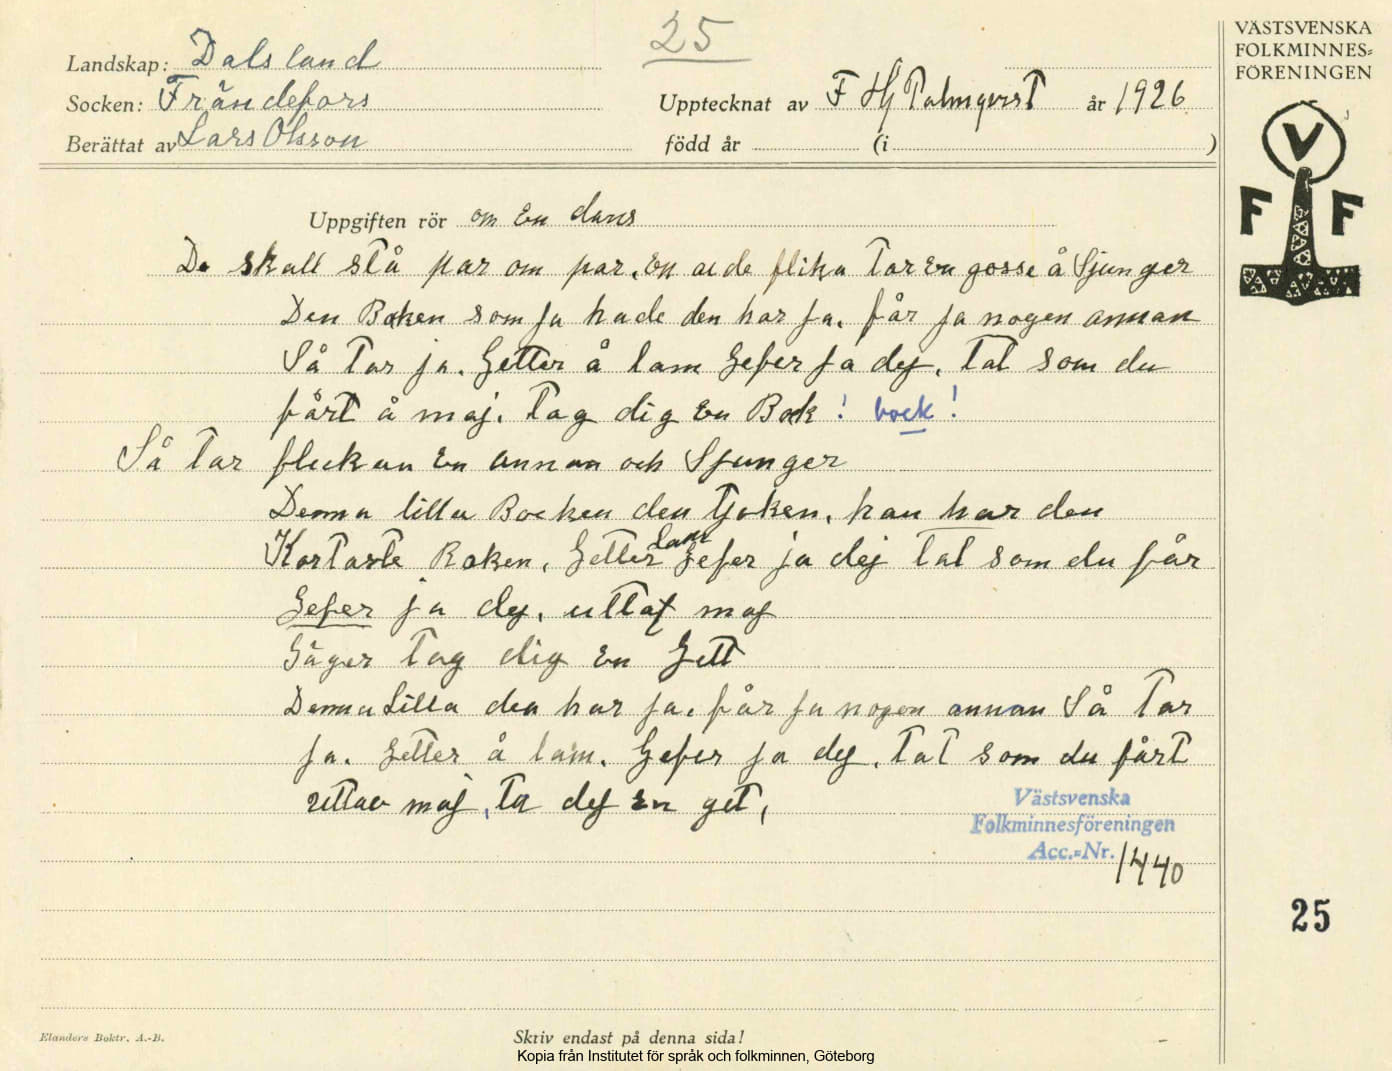 25
VÄSTSVENSKA
FOLKMINNES=
FÖRENINGEN
Landskap: Dalsland
Socken: Frändefors
Upptecknat av F Hj Palmqvist år 1926
Berättat av Lars Olsson
född år (i )
V
F F
Uppgiften rör om En dans
De skall stå par om par, En av de flika Tar En gosse å Sjunger
Den Boken som ja hade den har ja. får ja nogen annan
Så Tar ja. Getter å lam Gefer ja dej, Tal som du
fårt å maj. Tag dig En Bok ! bock !
Så Tar flickan En annan och Sjunger
Denna lilla Bocken den Tjoken, han har den
Kortaste Roken, Getter lam Gefer ja dej Tal som du får
Gefer ja dej, uttaf maj
Säger Tag dig En Gett
Denna Lilla den har ja. får ja nogen annan Så Tar
ja. Getter å lam. Gefer ja dej, Tal som du fårt
uttav maj, Ta dej En get,
Västsvenska
Folkminnesföreningen
Acc.=Nr. 1440
25
Elanders Boktr. A.-B.
Skriv endast på denna sida!
Kopia från Institutet för språk och folkminnen, Göteborg